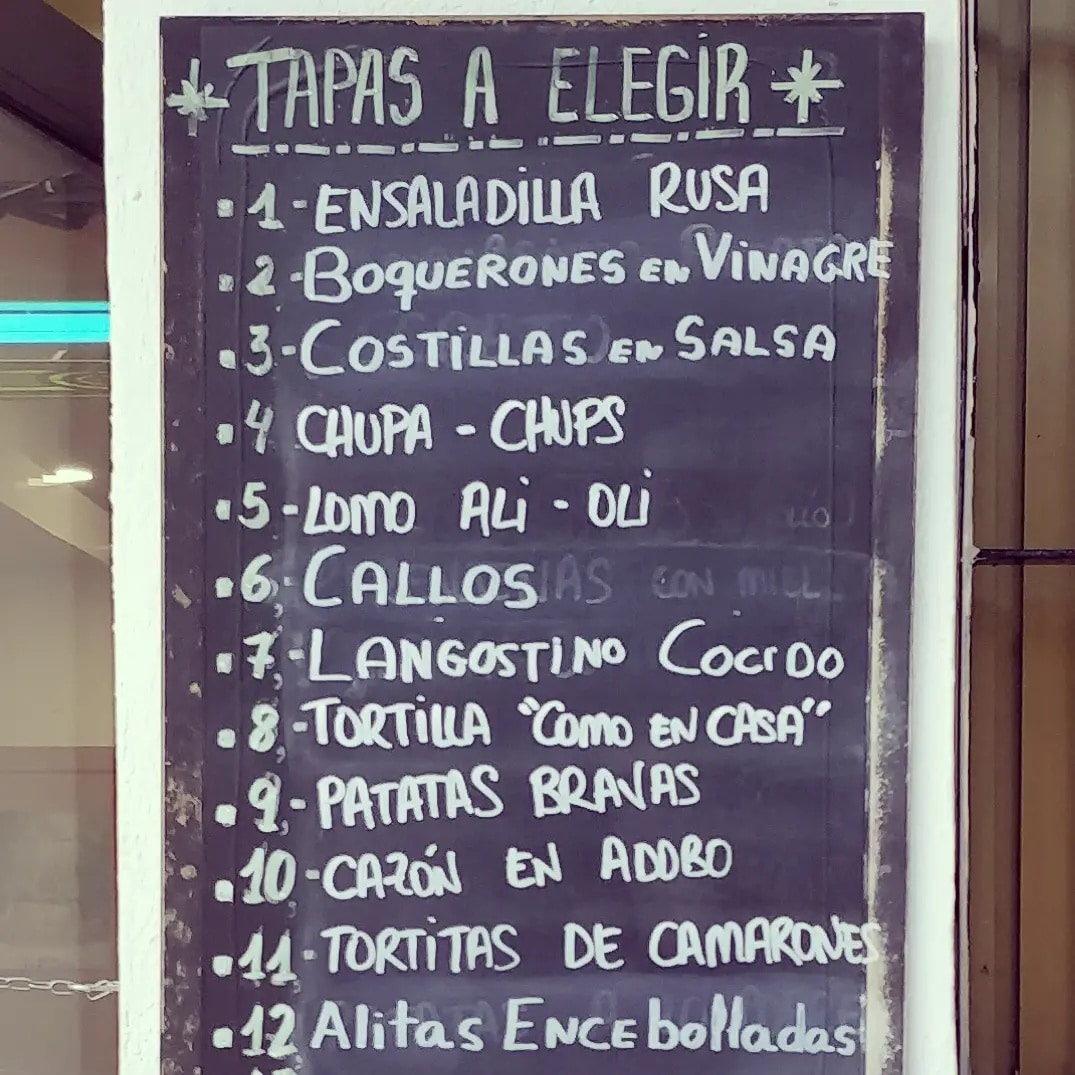 * TAPAS A ELEGIR *
1-ENSALADILLA RUSA
2-BOQUERONES EN VINAGRE
3-COSTILLAS EN SALSA
4 CHUPA-CHUPS
5-LOMO ALI-OLI
6-CALLOS
7-LANGOSTINO COCIDO
8-TORTILLA "COMO EN CASA"
9-PATATAS BRAVAS
10-CAZÓN EN ADOBO
11-TORTITAS DE CAMARONES
12 Alitas ENCEbolladas